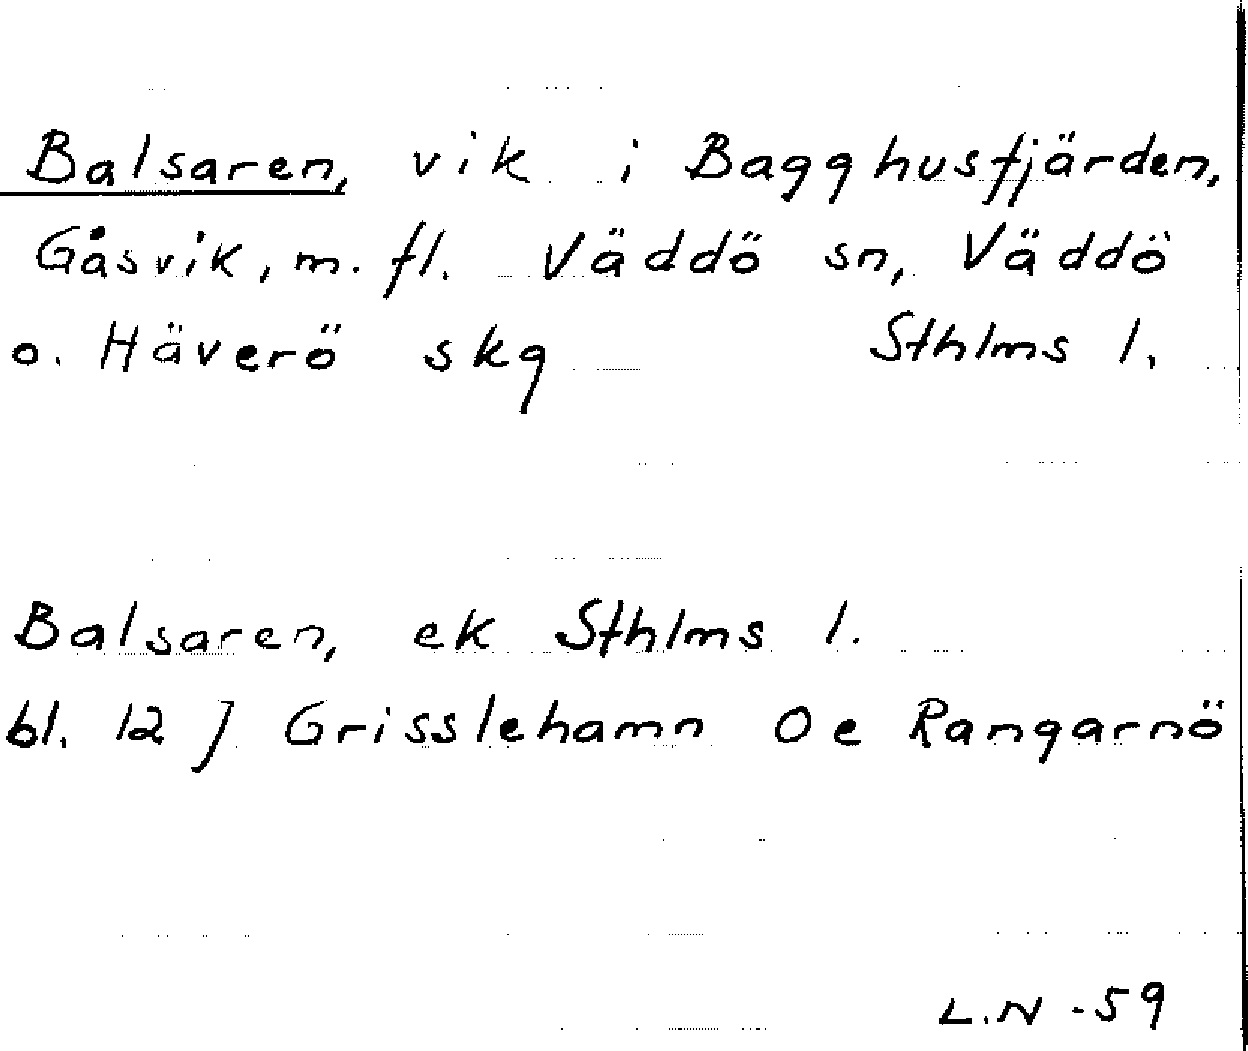 Balsaren, vik i Bagghusfjärden,
Gåsvik, m. fl. Väddö sn, Väddö
o. Häverö skg Sthlms l.
Balsaren, ek Sthlms l.
bl. 12 J Grisslehamn Oe Rangarnö
L.N -59